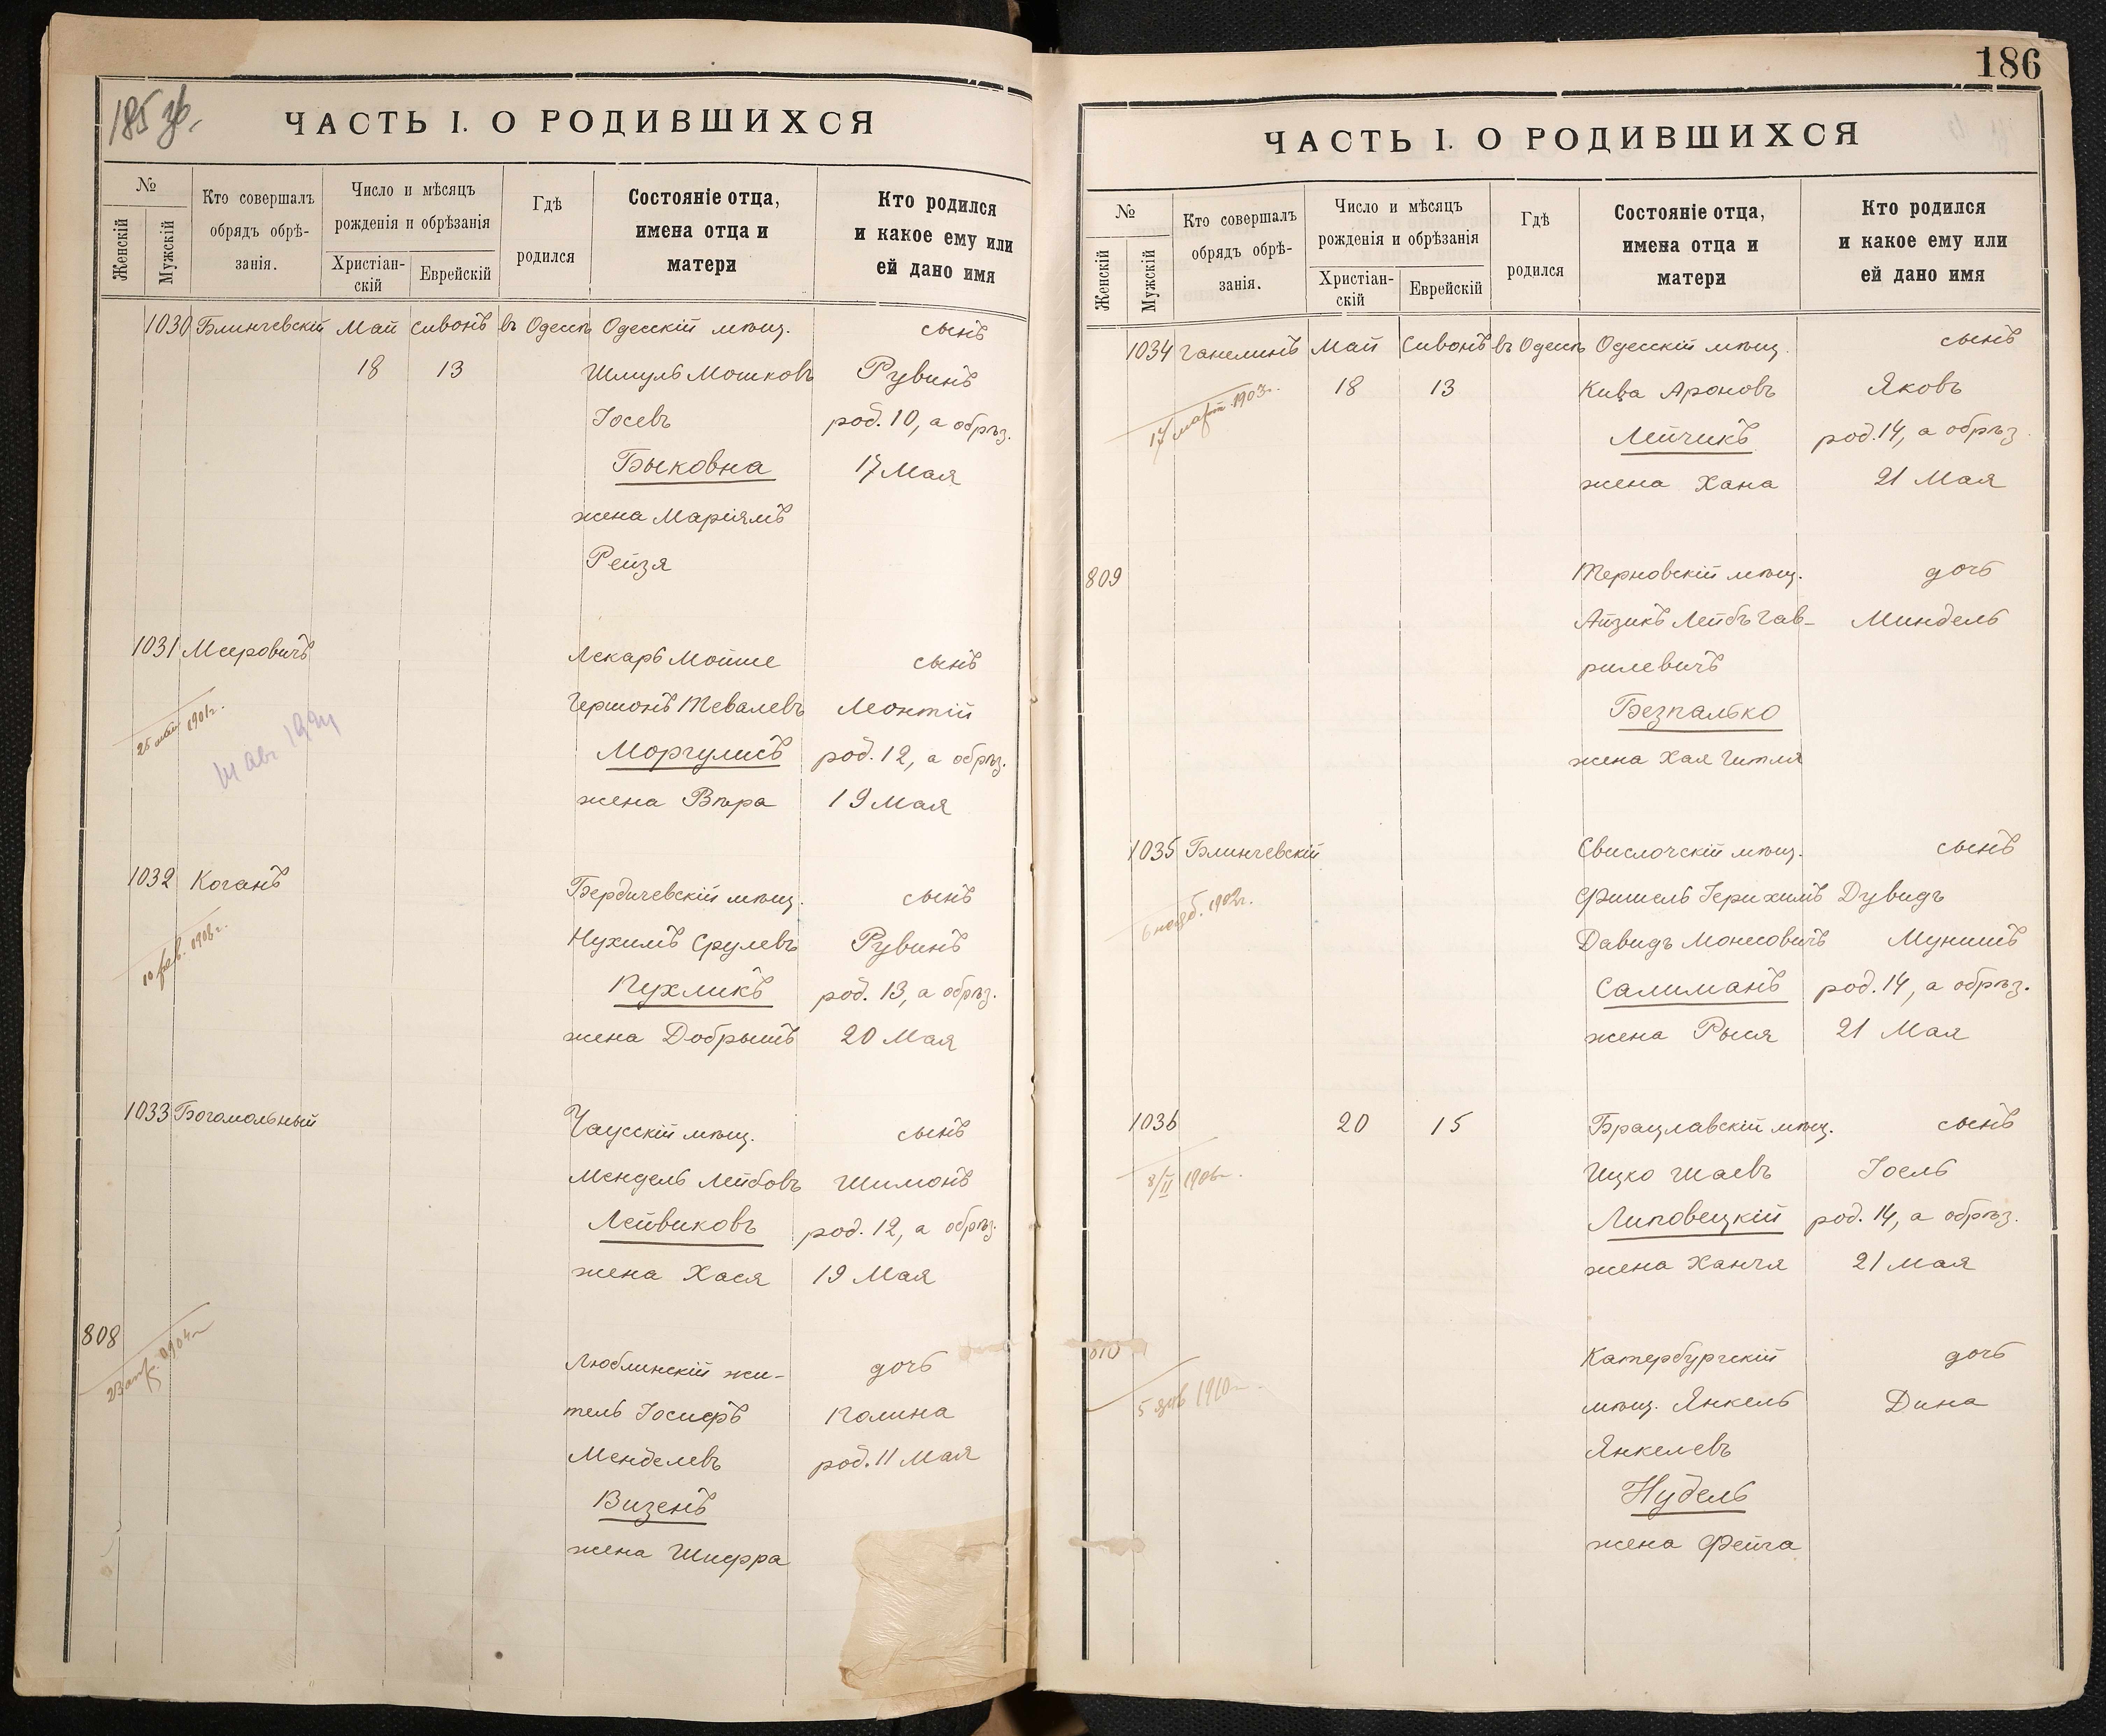 185 зв.
ЧАСТЬ I. О РОДИВШИХСЯ
№
Женскій
Мужскій
Кто совершалъ
обрядъ обрѣ-
занія.
Число и мѣсяцъ
рожденія и обрѣзанія
Христіан-
скій
Еврейскій
Гдѣ
родился
Состояніе отца,
имена отца и
матери
Кто родился
и какое ему или
ей дано имя
1030 Блинчевскій Май Сивонъ въ Одессѣ Одесскій мѣщ. сынъ
18 13 Шмуль Мошковъ Рувинъ
Іосевъ род. 10, а обрѣз.
Быковна 17 Мая
жена Маріямъ
Рейзя
1031 Меровичъ Лекарь Мойше сынъ
Гершонъ Тевалевъ Леонтій
25 мая 1901г.
Моргулисъ род. 12, а обрѣз.
жена Вѣра 19 Мая
1032 Коганъ Бердичевскій мѣщ. сынъ
Нухимъ Срулевъ Рувинъ
10 фев. 1908г.
Пухликъ род. 13, а обрѣз.
жена Добрышъ 20 Мая
1033 Богомольный Чаусскій мѣщ. сынъ
Мендель Лейбовъ Шимонъ
Лейвиковъ род. 12, а обрѣз.
жена Хася 19 Мая
808 Люблинскій жи- дочь
23 1904г
тель Іосифъ Полина
Менделевъ род. 11 Мая
Визенъ
жена Шифра
186
ЧАСТЬ I. О РОДИВШИХСЯ
№
Женскій
Мужскій
Кто совершалъ
обрядъ обрѣ-
занія.
Число и мѣсяцъ
рожденія и обрѣзанія
Христіан-
скій
Еврейскій
Гдѣ
родился
Состояніе отца,
имена отца и
матери
Кто родился
и какое ему или
ей дано имя
1034 Ганелинъ Май Сивонъ въ Одессѣ Одесскій мѣщ. сынъ
18 13 Кива Ароновъ Яковъ
17 март. 1903г.
Лейчикъ род. 14, а обрѣз.
жена Хана 21 Мая
809 Терновскій мѣщ. дочь
Айзикъ Лейбъ Гав- Миндель
рилевичъ
Безпалько
жена Хая Гитля
1035 Блинчевскій Свислочскій мѣщ. сынъ
Фишель Іерихимъ Дувидъ
6 нояб. 1902г.
Давидъ Монесовичъ Мунишъ
Салиманъ род. 14, а обрѣз.
жена Рыся 21 Мая
1036 20 15 Брацлавскій мѣщ. сынъ
8/II 1906г.
Ицко Шаевъ Іоель
Липовецкій род. 14, а обрѣз.
жена Ханчя 21 Мая
810 Катербургскій дочь
5 янв 1910г.
мѣщ. Янкель Дина
Янкелевъ
Нудель
жена Фейга